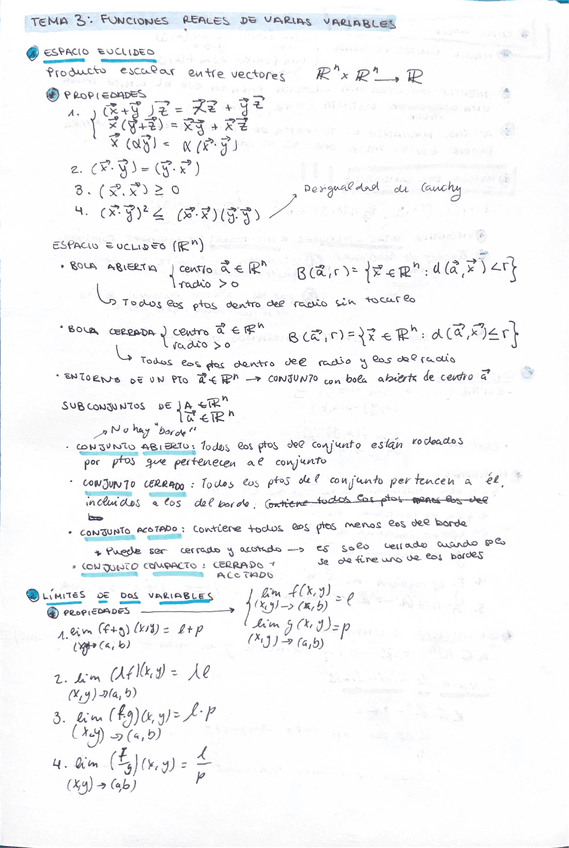 TEMA 3: FUNCIONES REALES DE VARIAS VARIABLES
1 ESPACIO EUCLIDEO
Producto escalar entre vectores ℝⁿ × ℝⁿ → ℝ
PROPIEDADES
1. { (x⃗+y⃗)z⃗ = x⃗z⃗ + y⃗z⃗
x⃗(y⃗+z⃗) = x⃗y⃗ + x⃗z⃗
x⃗(αy⃗) = α(x⃗·y⃗)
2. (x⃗·y⃗) = (y⃗·x⃗)
3. (x⃗·x⃗) ≥ 0
4. (x⃗·y⃗)² ≤ (x⃗·x⃗)(y⃗·y⃗) → Desigualdad de Cauchy
ESPACIO EUCLIDEO (ℝⁿ)
· BOLA ABIERTA { centro a⃗ ∈ ℝⁿ B(a⃗,r) = {x⃗ ∈ ℝⁿ : d(a⃗,x⃗) < r}
radio > 0
↳ Todos los ptos dentro del radio sin tocarlo
· BOLA CERRADA { centro a⃗ ∈ ℝⁿ B(a⃗,r) = {x⃗ ∈ ℝⁿ : d(a⃗,x⃗) ≤ r}
radio > 0
↳ Todos los ptos dentro del radio y los del radio
· ENTORNO DE UN PTO a⃗ ∈ ℝⁿ → CONJUNTO con bola abierta de centro a⃗
SUBCONJUNTOS DE { A ∈ ℝⁿ
a⃗ ∈ ℝⁿ
→ No hay "borde"
· CONJUNTO ABIERTO: Todos los ptos del conjunto están rodeados
por ptos que pertenecen al conjunto
· CONJUNTO CERRADO: Todos los ptos del conjunto pertencen a él,
incluidos a los del borde. Contiene todos los ptos menos los del
bo
· CONJUNTO ACOTADO: contiene todos los ptos menos los del borde
* Puede ser cerrado y acotado → es solo cerrado cuando solo
se define uno de los bordes
· CONJUNTO COMPACTO: CERRADO +
ACOTADO
2 LÍMITES DE DOS VARIABLES
PROPIEDADES → { lim f(x,y) = l
(x,y)→(a,b)
lim g(x,y) = p
(x,y)→(a,b)
1. lim (f+g)(x,y) = l+p
(x,y)→(a,b)
2. lim (λf)(x,y) = λl
(x,y)→(a,b)
3. lim (f·g)(x,y) = l·p
(x,y)→(a,b)
4. lim (f/g)(x,y) = l/p
(x,y)→(a,b)